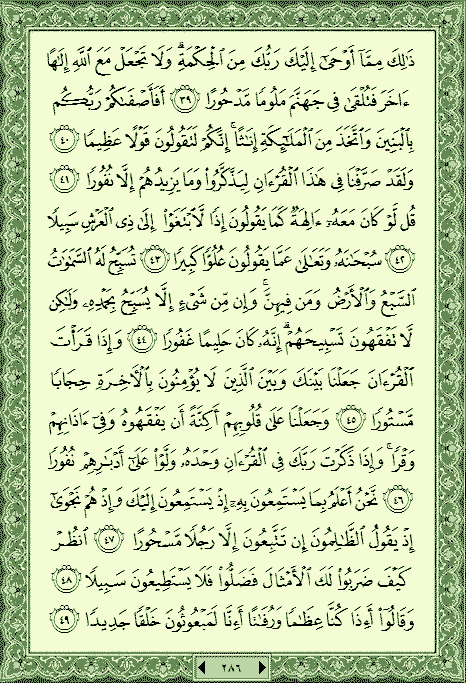 ذَٰلِكَ مِمَّآ أَوْحَىٰٓ إِلَيْكَ رَبُّكَ مِنَ ٱلْحِكْمَةِ ۗ وَلَا تَجْعَلْ مَعَ ٱللَّهِ إِلَٰهًا
ءَاخَرَ فَتُلْقَىٰ فِى جَهَنَّمَ مَلُومًا مَّدْحُورًا ٣٩ أَفَأَصْفَىٰكُمْ رَبُّكُم
بِٱلْبَنِينَ وَٱتَّخَذَ مِنَ ٱلْمَلَٰٓئِكَةِ إِنَٰثًا ۚ إِنَّكُمْ لَتَقُولُونَ قَوْلًا عَظِيمًا ٤٠
وَلَقَدْ صَرَّفْنَا فِى هَٰذَا ٱلْقُرْءَانِ لِيَذَّكَّرُوا۟ وَمَا يَزِيدُهُمْ إِلَّا نُفُورًا ٤١
قُل لَّوْ كَانَ مَعَهُۥٓ ءَالِهَةٌ كَمَا يَقُولُونَ إِذًا لَّٱبْتَغَوْا۟ إِلَىٰ ذِى ٱلْعَرْشِ سَبِيلًا
٤٢ سُبْحَٰنَهُۥ وَتَعَٰلَىٰ عَمَّا يَقُولُونَ عُلُوًّا كَبِيرًا ٤٣ تُسَبِّحُ لَهُ ٱلسَّمَٰوَٰتُ
ٱلسَّبْعُ وَٱلْأَرْضُ وَمَن فِيهِنَّ ۚ وَإِن مِّن شَىْءٍ إِلَّا يُسَبِّحُ بِحَمْدِهِۦ وَلَٰكِن
لَّا تَفْقَهُونَ تَسْبِيحَهُمْ ۗ إِنَّهُۥ كَانَ حَلِيمًا غَفُورًا ٤٤ وَإِذَا قَرَأْتَ
ٱلْقُرْءَانَ جَعَلْنَا بَيْنَكَ وَبَيْنَ ٱلَّذِينَ لَا يُؤْمِنُونَ بِٱلْءَاخِرَةِ حِجَابًا
مَّسْتُورًا ٤٥ وَجَعَلْنَا عَلَىٰ قُلُوبِهِمْ أَكِنَّةً أَن يَفْقَهُوهُ وَفِىٓ ءَاذَانِهِمْ
وَقْرًا ۚ وَإِذَا ذَكَرْتَ رَبَّكَ فِى ٱلْقُرْءَانِ وَحْدَهُۥ وَلَّوْا۟ عَلَىٰٓ أَدْبَٰرِهِمْ نُفُورًا
٤٦ نَّحْنُ أَعْلَمُ بِمَا يَسْتَمِعُونَ بِهِۦٓ إِذْ يَسْتَمِعُونَ إِلَيْكَ وَإِذْ هُمْ نَجْوَىٰٓ
إِذْ يَقُولُ ٱلظَّٰلِمُونَ إِن تَتَّبِعُونَ إِلَّا رَجُلًا مَّسْحُورًا ٤٧ ٱنظُرْ
كَيْفَ ضَرَبُوا۟ لَكَ ٱلْأَمْثَالَ فَضَلُّوا۟ فَلَا يَسْتَطِيعُونَ سَبِيلًا ٤٨
وَقَالُوٓا۟ أَءِذَا كُنَّا عِظَٰمًا وَرُفَٰتًا أَءِنَّا لَمَبْعُوثُونَ خَلْقًا جَدِيدًا ٤٩
٢٨٦